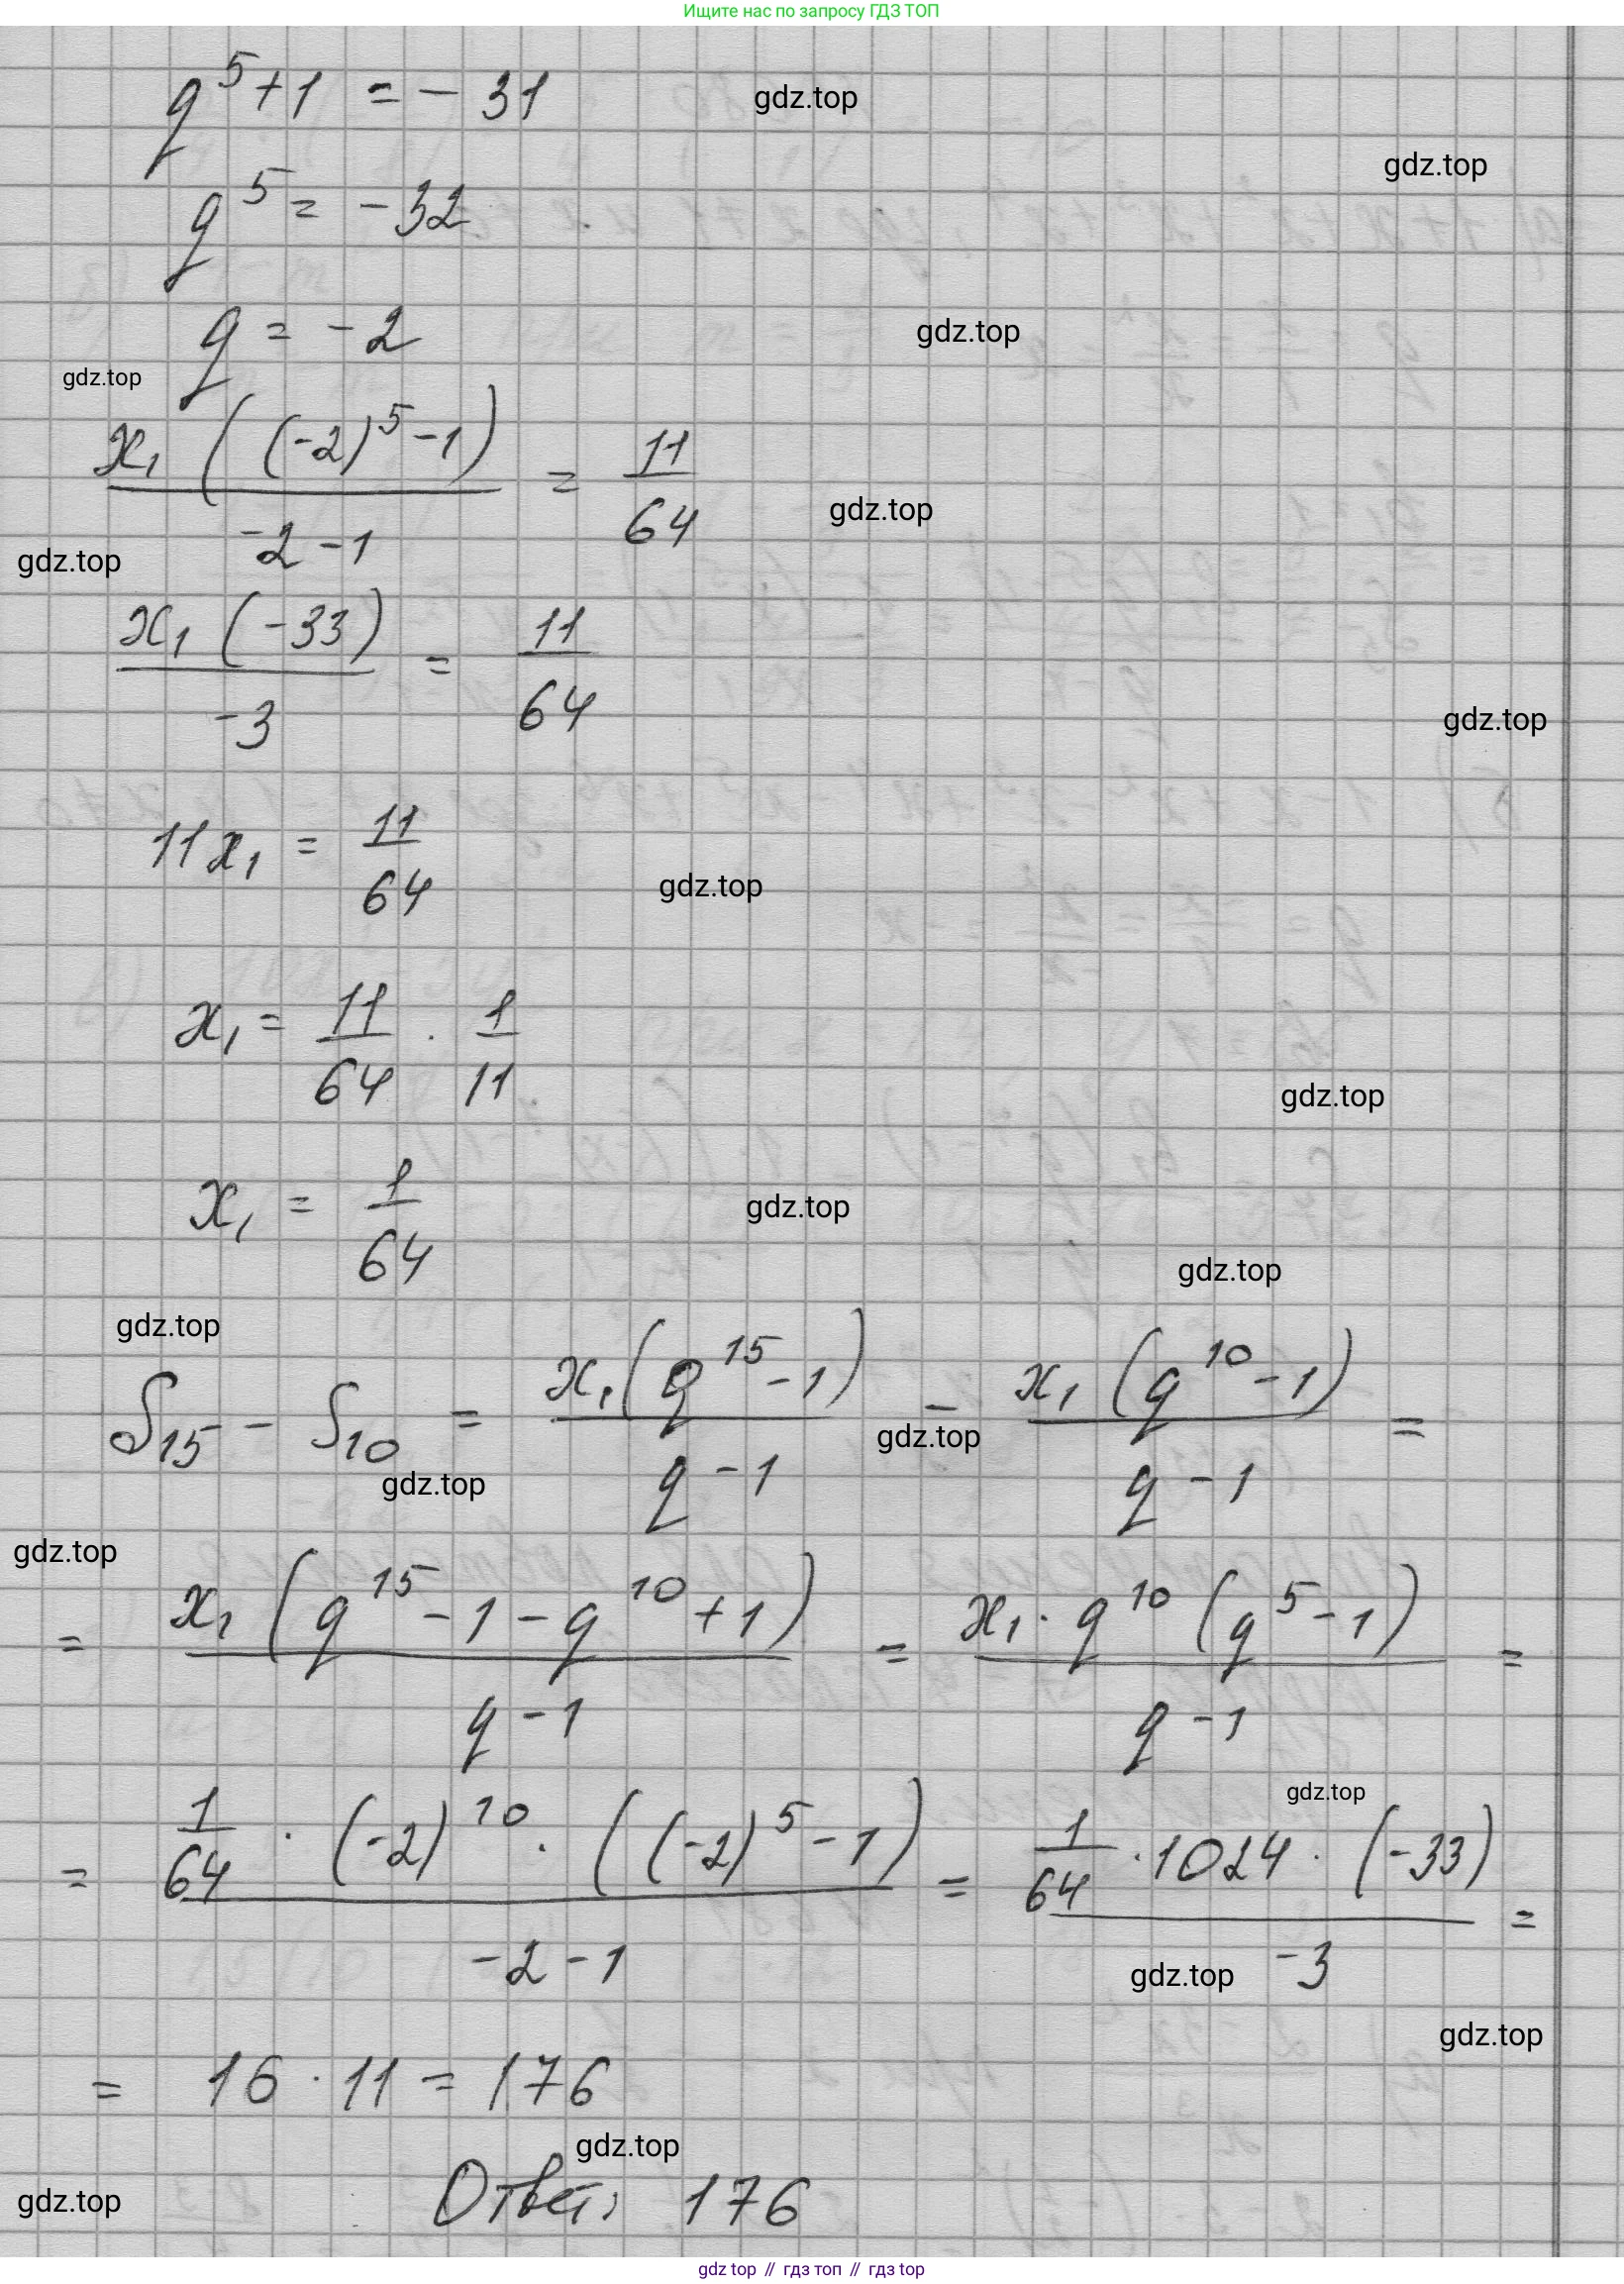 Ищите нас по запросу ГДЗ ТОП
q^5 + 1 = - 31
gdz.top
gdz.top
q^5 = -32
q = -2
gdz.top
gdz.top
x₁((-2)^5 - 1) / (-2 - 1) = 11/64
gdz.top
gdz.top
x₁(-33) / -3 = 11/64
gdz.top
11x₁ = 11/64
gdz.top
x₁ = 11/64 · 1/11
gdz.top
x₁ = 1/64
gdz.top
gdz.top
gdz.top
S₁₅ - S₁₀ = x₁(q^15 - 1) / (q - 1) - x₁(q^10 - 1) / (q - 1) =
gdz.top
gdz.top
gdz.top
= x₁(q^15 - 1 - q^10 + 1) / (q - 1) = x₁ · q^10 (q^5 - 1) / (q - 1) =
gdz.top
= 1/64 · (-2)^10 · ((-2)^5 - 1) / (-2 - 1) = 1/64 · 1024 · (-33) / -3 =
gdz.top
gdz.top
= 16 · 11 = 176
gdz.top
Ответ: 176
gdz.top
gdz top // гдз топ // гдз top